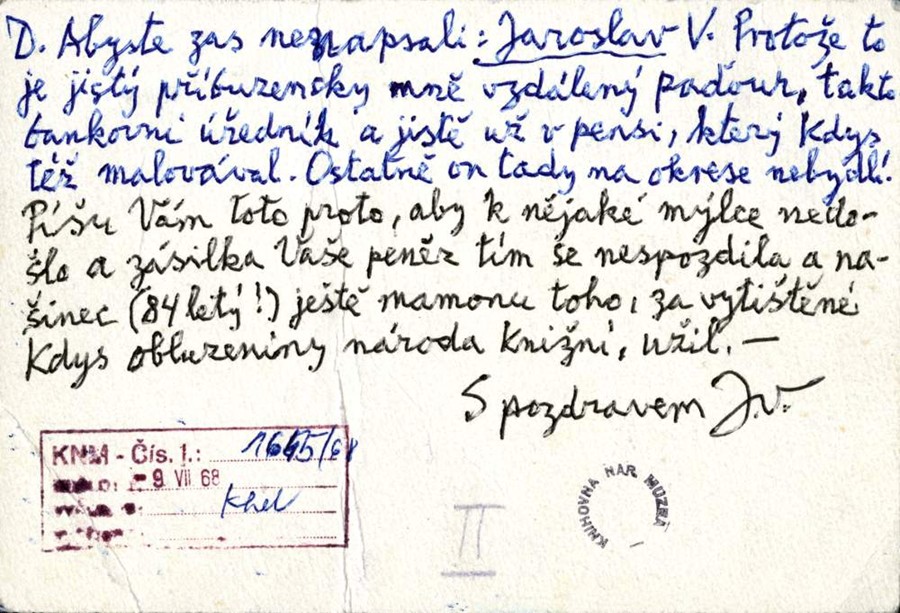 D. Abyste zas nenapsali: Jaroslav V. Protože to
je jistý příbuzensky mně vzdálený paďour, takto
bankovní úředník a jistě už v pensi, který Kdys
též malovával. Ostatně on tady na okrese nebydlí.
Píšu Vám toto proto, aby k nějaké mýlce nedo-
šlo a zásilka Vaše peněz tím se nespozdila a na-
šinec (84 letý!) ještě mamonu toho, za vytištěné
Kdys obluzeniny národa Knižní, užil. —
S pozdravem JV.
KNM - Čís. j.: 1665/68
- 9. VII 68
Khel
II
KNIHOVNA NÁR. MUZEA